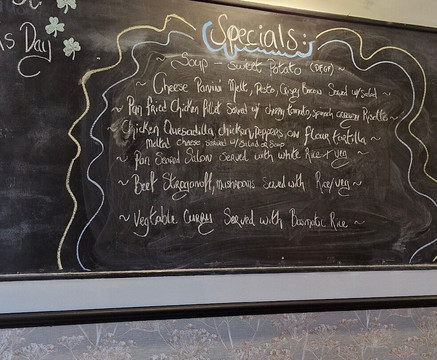 's Day
Specials:
~ Soup - Sweet Potato (DFGF) ~
~ Cheese Panini Melt, Pesto, Crispy Bacon Served w/ salad ~
~ Pan Fried Chicken Fillet Served w/ cherry tomato, spinach Risotto ~
~ Chicken Quesadilla chicken, Peppers, on Flour Tortilla ~
melted cheese served w/ Salad or Soup
~ Pan Seared Salmon Served with white Rice + veg ~
~ Beef Stroganoff, mushrooms Served with Rice/veg ~
~ Vegetable Curry Served with Basmatic Rice ~